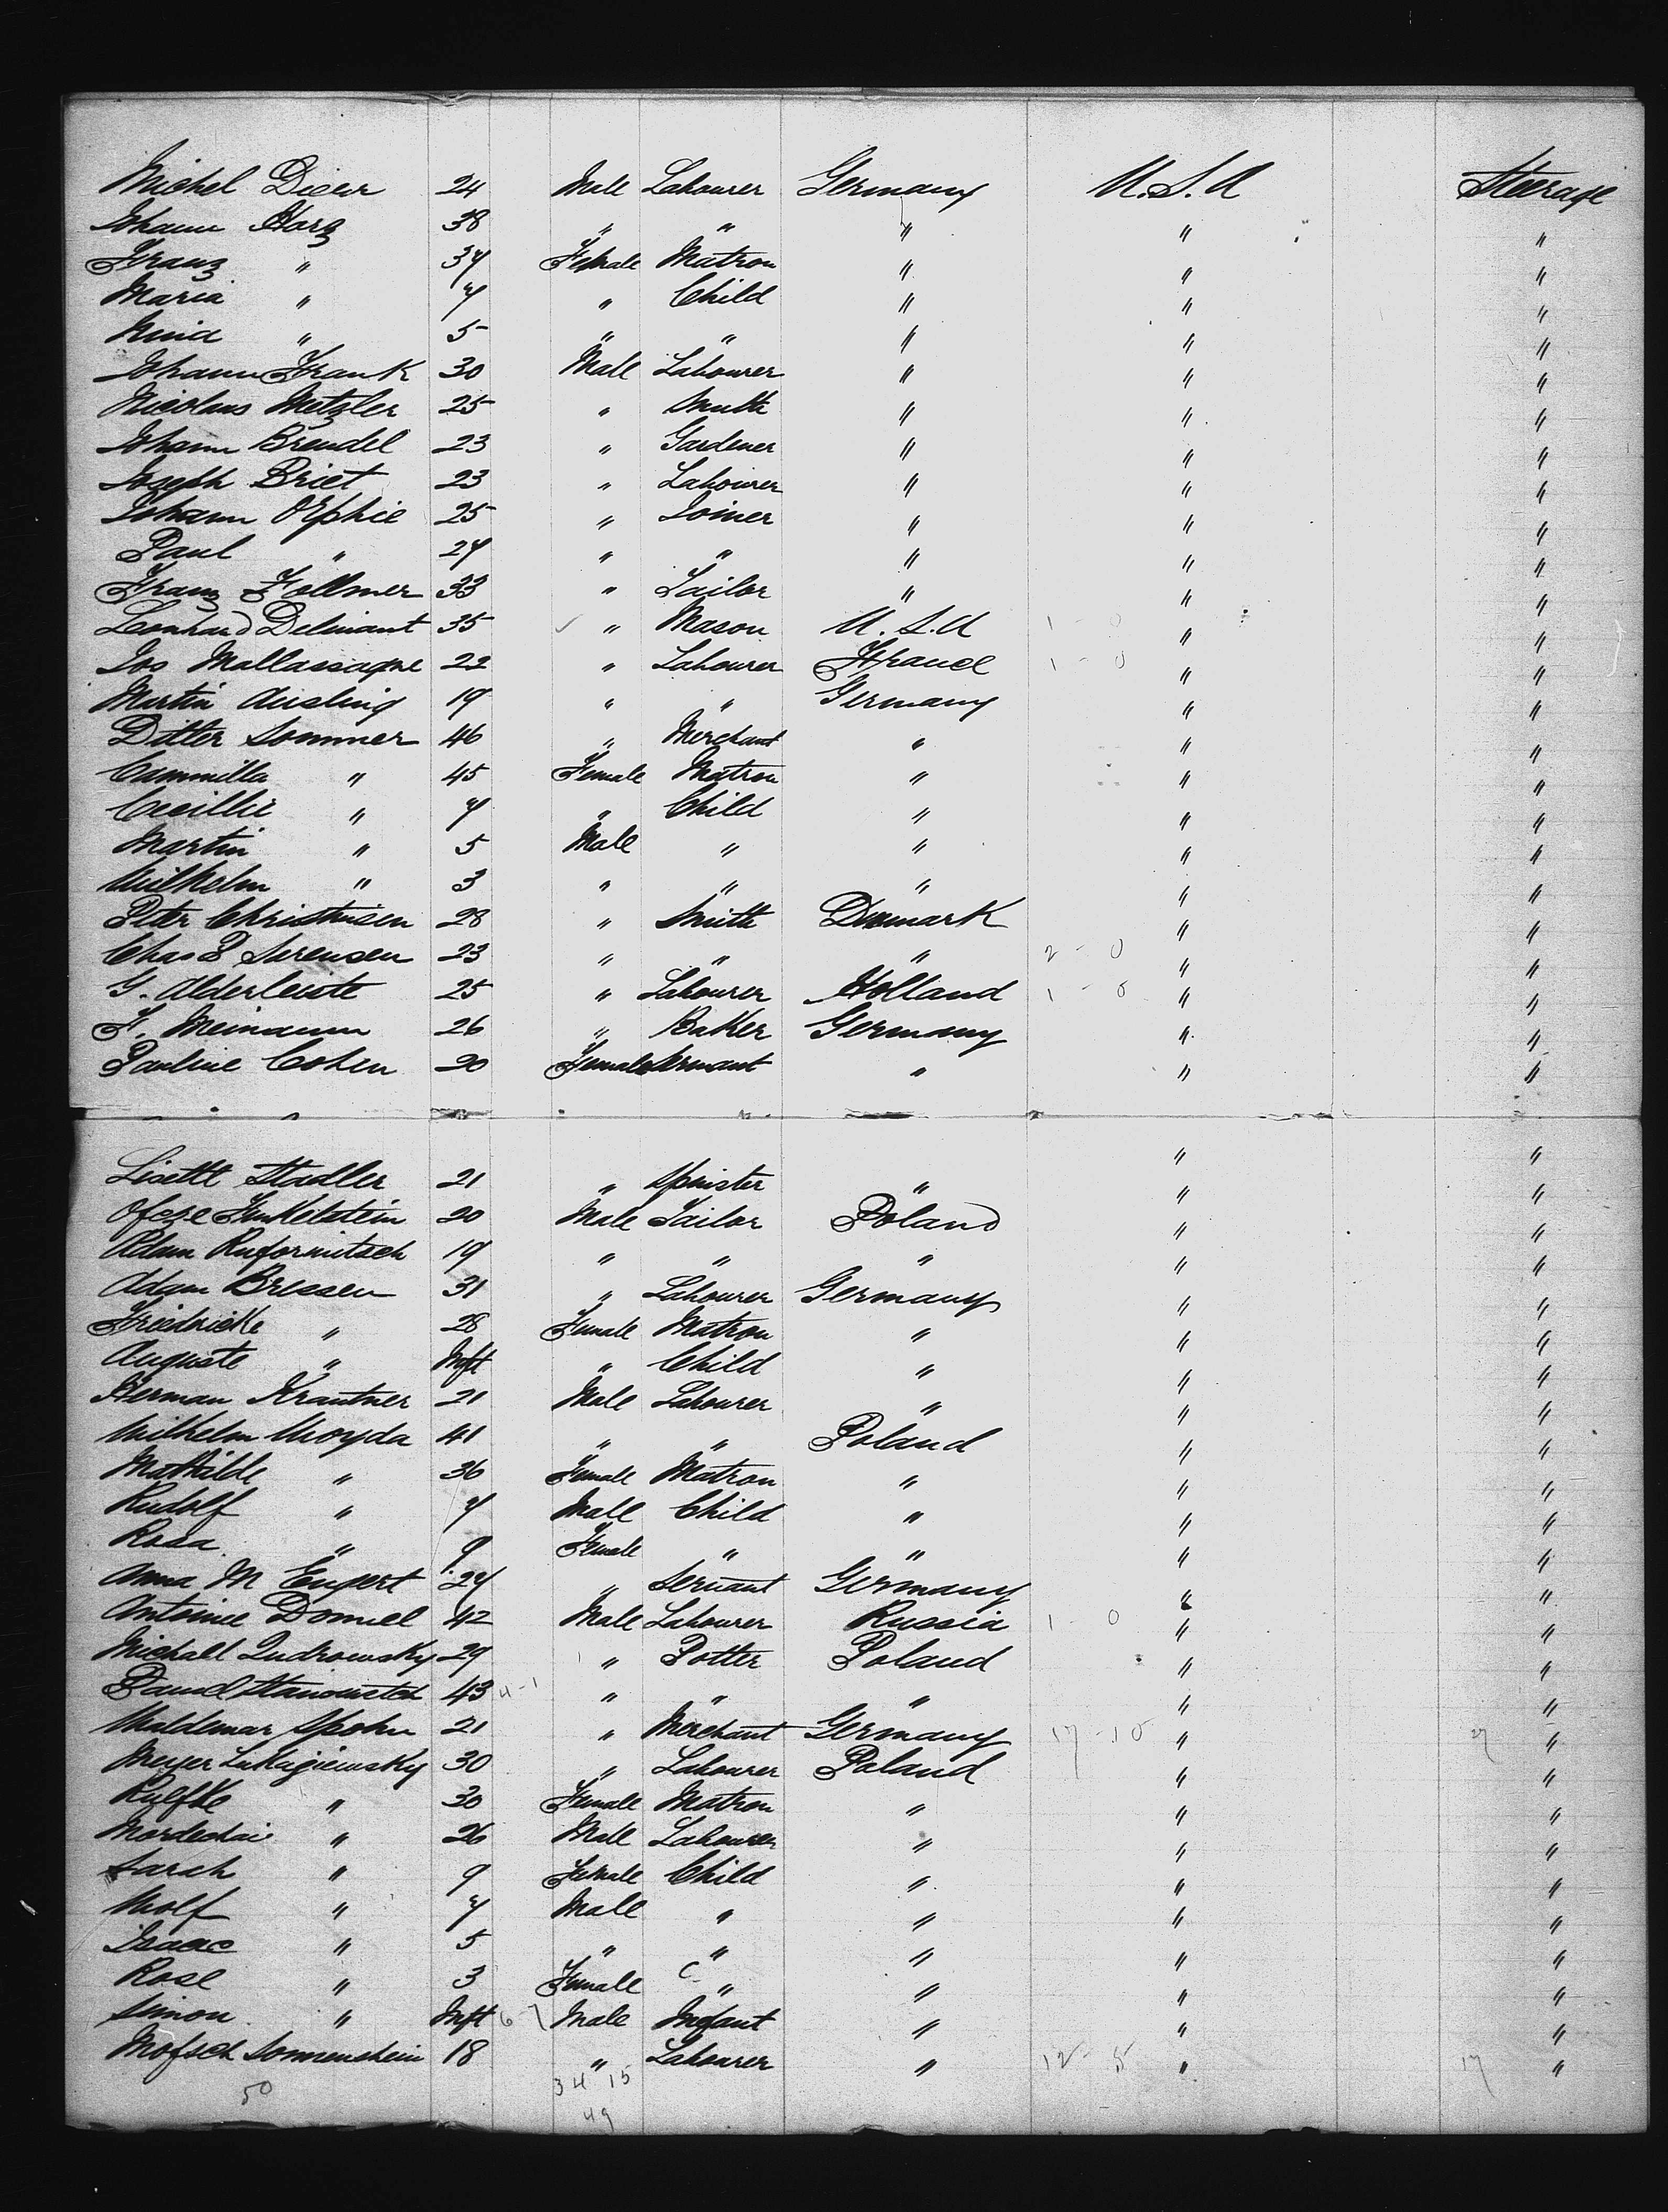 Michel Dicur 24 Male Labourer Germany U.S.A Steerage
Johann Harz 38 " " " " "
Franz " 34 Female Matron " " "
Maria " 4 " Child " " "
" 5 " " " " "
Johann Frank 30 Male Labourer " " "
Nicolaus Metzler 25 " Smith " " "
Johann Brendel 23 " Gardener " " "
Joseph Briet 23 " Labourer " " "
Johann 25 " Joiner " " "
Paul " 24 " " " " "
Franz Follmer 33 " Tailor " " "
Leonhard Delmant 35 " Mason U.S.A 1 - 0 " "
Jos Mallassagne 22 " Labourer France 1 - 0 " "
Martin Ausling 19 " " Germany " "
Ditler Sommer 46 " Merchant " " "
Cammilla " 45 Female Matron " " "
Cecillie " 4 " Child " " "
Martin " 5 Male " " " "
Wilhelm " 3 " " " " "
Peter Christensen 28 " Smith Denmark " "
Chas P Sorensen 23 " " " 2 - 0 " "
G. Alderleiste 25 " Labourer Holland 1 - 0 " "
F. Meinaum 26 " Baker Germany " "
Pauline Cohen 20 Female Servant " " "
Lisette Stadler 21 " Spinster " " "
Finkelstein 20 Male Tailor Poland " "
Adam Ruforwitsch 19 " " " " "
Adam Bressen 31 " Labourer Germany " "
Friedricke " 28 Female Matron " " "
Auguste " Inft " Child " " "
Herman Krautner 21 Male Labourer " " "
Wilhelm Woyda 41 " " Poland " "
Mathilde " 36 Female Matron " " "
Rudolf " 4 Male Child " " "
Rosa " 9 Female " " " "
Anna M Engert 24 " Servant Germany " "
Antoine Domiel 42 Male Labourer Russia 1 - 0 " "
Michall Dudrowsky 29 " Potter Poland " "
43 4-1 " " " " "
Waldemar Spohn 21 " Merchant Germany 17 - 10 " "
Meyer Lukagiewsky 30 " Labourer Poland " "
Rylfke " 30 Female Matron " " "
Mordechai " 26 Male Labourer " " "
Sarah " 9 Female Child " " "
Wolf " 4 Male " " " "
Isaac " 5 " " " " "
Rose " 3 Female " " " "
Simon " Inft Male Infant " " "
Mofsch Sonnenshein 18 " Labourer " 12 - 5 " "
50 34 15
49